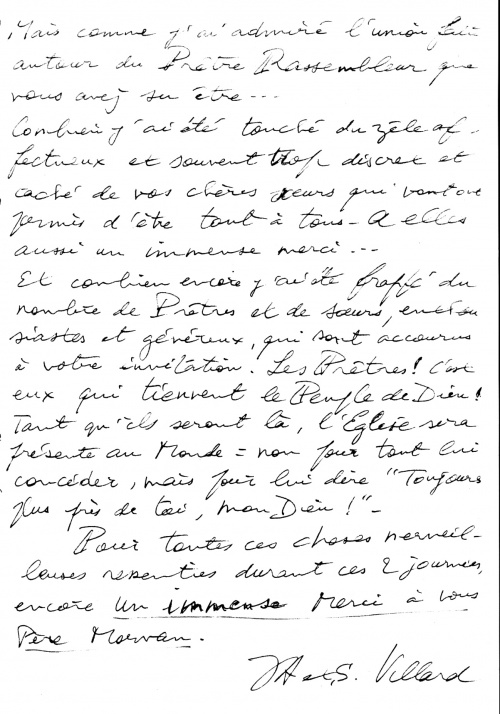 Mais comme j'ai admiré l'union fait
autour du Prêtre Rassembleur que
vous avez su être...
Combien j'ai été touché du zèle af-
fectueux et souvent trop discret et
caché de vos chères sœurs qui vont ont
permis d'être tout à tous - A elles
aussi un immense merci...
Et combien encore j'ai été frappé du
nombre de Prêtres et de sœurs, enthou
siastes et généreux, qui sont accourus
à votre invitation. Les Prêtres! c'est
eux qui tiennent le Peuple de Dieu!
Tant qu'ils seront là, l'Eglise sera
présente au Monde = non pour tout lui
concéder, mais pour lui dire "Toujours
plus près de toi, mon Dieu!" -
Pour toutes ces choses merveil-
leuses ressenties durant ces 2 journées,
encore un immense Merci à vous
Père Morvan.
S. Villard